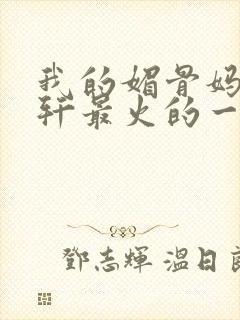 我的媚骨妈
轩最火的一
鄧志輝 溫日